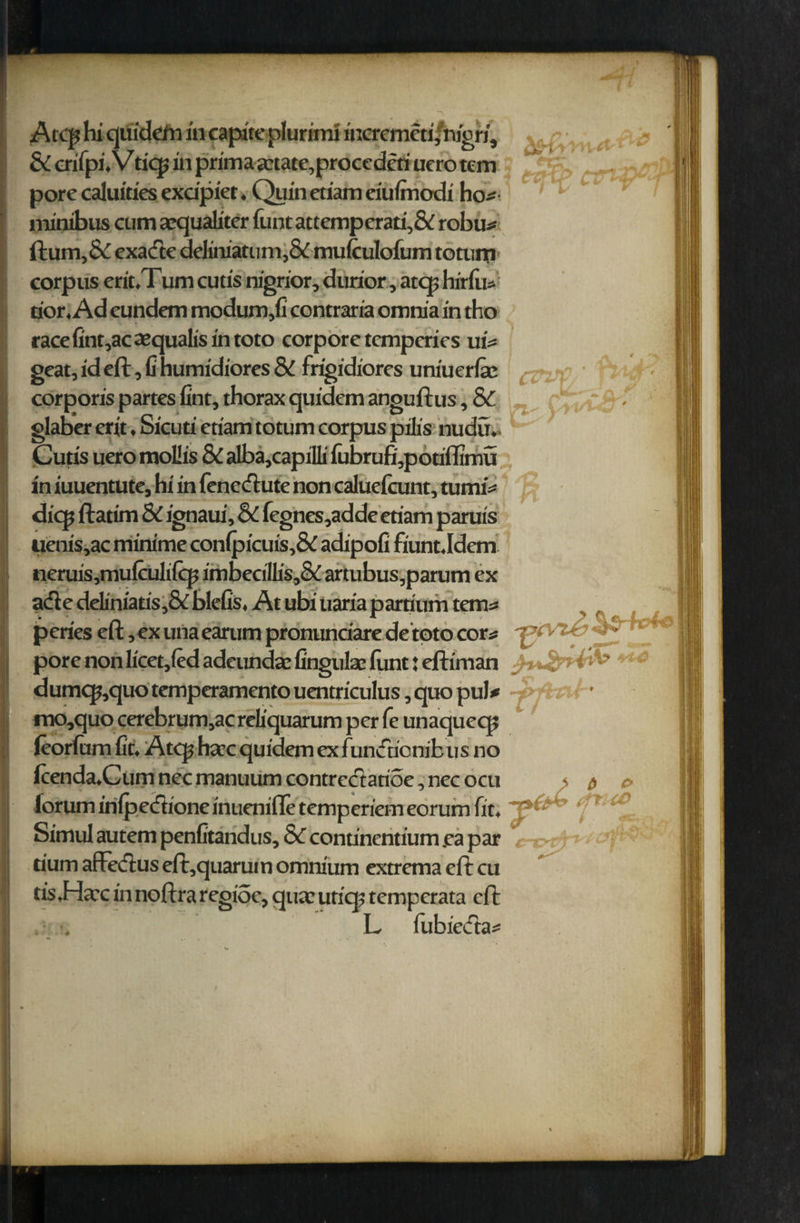 41
Atqꝫ hi quidem in capite plurimi incremēti, nigri,
& criſpi. Vtiqꝫ in prima ætate, procedēti uero tem
pore caluities excipiet. Quin etiam eiuſmodi ho⸗
minibus cum æqualiter ſunt attemperati, & robu⸗
ſtum, & exacte deliniatum, & muſculoſum totum
corpus erit. Tum cutis nigrior, durior, atqꝫ hirſu⸗
tior. Ad eundem modum, ſi contraria omnia in tho
race ſint, ac æqualis in toto corpore temperies ui⸗
geat, id eſt, ſi humidiores & frigidiores uniuerſæ
corporis partes ſint, thorax quidem anguſtus, &
glaber erit. Sicuti etiam totum corpus pilis nudū.
Cutis uero mollis & alba, capilli ſubrufi, potiſſimū
in iuuentute, hi in ſenectute non calueſcunt, tumi⸗
diqꝫ ſtatim & ignaui, & ſegnes, adde etiam paruis
uenis, ac minime conſpicuis, & adipoſi fiunt. Idem
neruis, muſculiſqꝫ imbecillis, & artubus, parum ex
acte deliniatis, & bleſis. At ubi uaria partium tem⸗
peries eſt, ex una earum pronunciare de toto cor⸗
pore non licet, ſed adeundæ ſingulæ ſunt : eſtiman
dumqꝫ, quo temperamento uentriculus, quo pul⸗
mo, quo cerebrum, ac reliquarum per ſe unaquecꝫ
ſeorſum ſit. Atqꝫ hæc quidem ex functionibus no
ſcenda. Cum nec manuum contrectatiōe, nec ocu
lorum inſpectione inueniſſe temperiem eorum ſit.
Simul autem penſitandus, & continentium ea par
tium affectus eſt, quarum omnium extrema eſt cu
tis. Hæc in noſtra regiōe, quæ utiqꝫ temperata eſt
L ſubiecta⸗